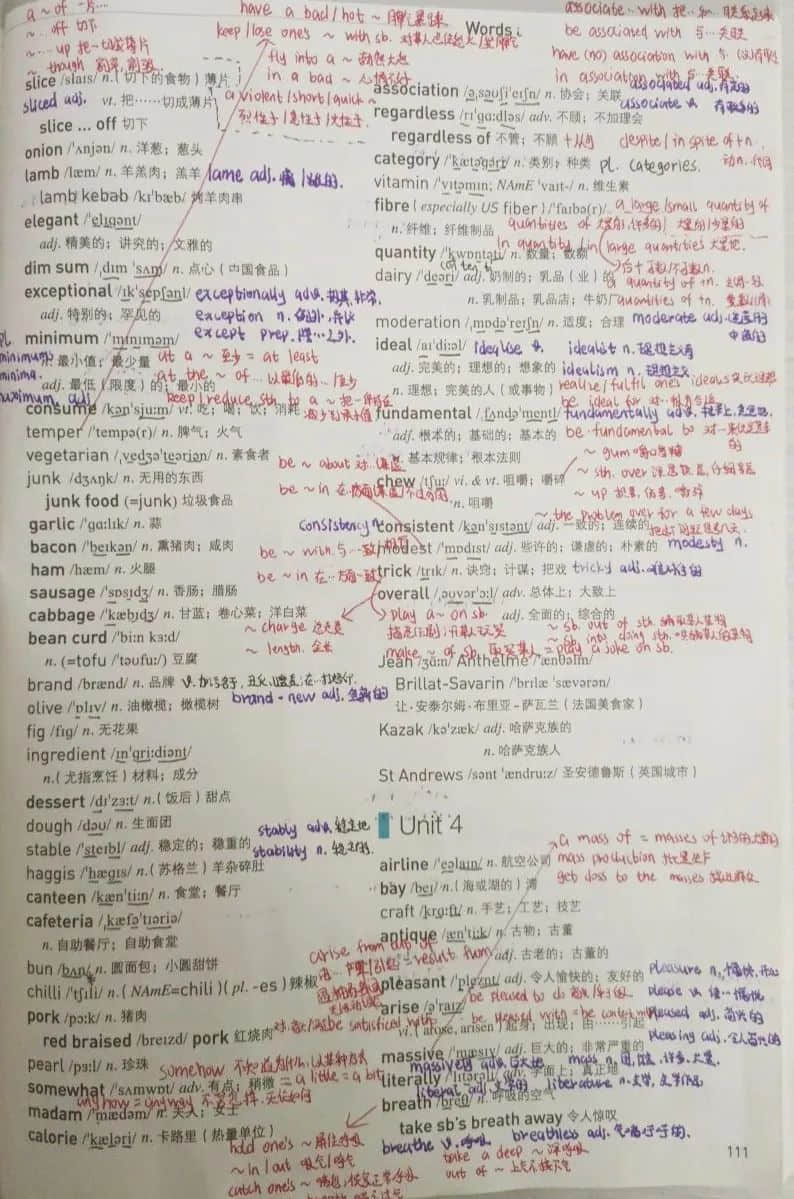 a ~ of 一片…
~ off 切下
~ … up 把~切成薄片
have a bad/hot ~ 脾气暴躁
keep/lose ones ~ with sb.
fly into a ~ 勃然大怒
in a bad ~ 心情不好
a violent/short/quick ~
烈性子/急性子/火性子
slice /slaɪs/ n.(切下的食物)薄片
sliced adj. vt. 把……切成薄片
slice ... off 切下
onion /ˈʌnjən/ n. 洋葱;葱头
lamb /læm/ n. 羊羔肉;羔羊 lame adj.
lamb kebab /kɪˈbæb/ 烤羊肉串
elegant /ˈelɪɡənt/
adj. 精美的;讲究的;文雅的
dim sum /ˌdɪm ˈsʌm/ n. 点心(中国食品)
exceptional /ɪkˈsepʃənl/ exceptionally adv.
adj. 特别的;罕见的 exception n.
minimum /ˈmɪnɪməm/ except prep. 除…之外
n. 最小值;最少量 at a ~ 至少 = at least
adj. 最低(限度)的;最小的 at the ~ of …
pl.
minimums
minima.
maximum adj.
keep/reduce sth to a ~
consume /kənˈsjuːm/ vt. 吃;喝;饮;消耗
temper /ˈtempə(r)/ n. 脾气;火气
vegetarian /ˌvedʒəˈteəriən/ n. 素食者
junk /dʒʌŋk/ n. 无用的东西 be ~ about 对…谦虚
junk food (=junk) 垃圾食品 be ~ in 在…方面谦虚/不过分的
garlic /ˈɡɑːlɪk/ n. 蒜
consistency n.
bacon /ˈbeɪkən/ n. 熏猪肉;咸肉 be ~ with 与…一致
ham /hæm/ n. 火腿 be ~ in 在…方面一致
sausage /ˈsɒsɪdʒ/ n. 香肠;腊肠
cabbage /ˈkæbɪdʒ/ n. 甘蓝;卷心菜;洋白菜
bean curd /ˈbiːn kɜːd/ ~ charge
n. (=tofu /ˈtəʊfuː/) 豆腐 ~ length. 全长
brand /brænd/ n. 品牌 v.
brand-new adj. 全新的
olive /ˈɒlɪv/ n. 油橄榄;橄榄树
fig /fɪɡ/ n. 无花果
ingredient /ɪnˈɡriːdiənt/
n.(尤指烹饪)材料;成分
dessert /dɪˈzɜːt/ n.(饭后)甜点
dough /dəʊ/ n. 生面团
stable /ˈsteɪbl/ adj. 稳定的;稳重的 stably adv. 稳定地
stability n.
haggis /ˈhæɡɪs/ n.(苏格兰)羊杂碎肚
canteen /kænˈtiːn/ n. 食堂;餐厅
cafeteria /ˌkæfəˈtɪəriə/
n. 自助餐厅;自助食堂
bun /bʌn/ n. 圆面包;小圆甜饼
chilli /ˈtʃɪli/ n.(NAmE=chili)(pl. -es) 辣椒
pork /pɔːk/ n. 猪肉
red braised /breɪzd/ pork 红烧肉
pearl /pɜːl/ n. 珍珠 somehow 不知道为什么,以某种方式
somewhat /ˈsʌmwɒt/ adv. 有点;稍微 = a little = a bit
anyhow = anyway 不管怎样,无论如何
madam /ˈmædəm/ n. 夫人;女士
calorie /ˈkæləri/ n. 卡路里(热量单位)
hold one's ~ 屏住呼吸
~ in/out 吸气/呼气
catch one's ~
Words
associate … with 把…和…联系起来
be associated with 与…关联
have (no) association with
in association with 与…关联
association /əˌsəʊʃiˈeɪʃn/ n. 协会;关联 associated adj.
associate v.
regardless /rɪˈɡɑːdləs/ adv. 不顾;不加理会
regardless of 不管;不顾 despite/in spite of + n.
category /ˈkætəɡəri/ n. 类别;种类 pl. categories.
vitamin /ˈvɪtəmɪn; NAmE ˈvaɪt-/ n. 维生素
fibre (especially US fiber) /ˈfaɪbə(r)/ a large/small quantity of
n. 纤维;纤维制品 quantities of
in quantity / in large quantities 大量地.
quantity /ˈkwɒntəti/ n. 数量;数额
dairy /ˈdeəri/ adj. 奶制的;乳品(业)的 a quantity of + n.
n. 乳制品;乳品店;牛奶厂 quantities of + n.
moderation /ˌmɒdəˈreɪʃn/ n. 适度;合理 moderate adj.
ideal /aɪˈdiːəl/ idealise v. idealist n.
adj. 完美的;理想的;想象的 idealism n. 理想主义
n. 理想;完美的人(或事物) realise/fulfil ones ideals
be ideal for
fundamental /ˌfʌndəˈmentl/ fundamentally adv.
adj. 根本的;基础的;基本的 be fundamental to
n. 基本规律;根本法则
chew /tʃuː/ vi. & vt. 咀嚼;嚼碎 ~ gum
n. 咀嚼 ~ sth. over
~ up
~ the problem over for a few days
consistent /kənˈsɪstənt/ adj. 一致的;连续的
modest /ˈmɒdɪst/ adj. 些许的;谦虚的;朴素的 modesty n.
trick /trɪk/ n. 诀窍;计谋;把戏 tricky adj.
overall /ˌəʊvərˈɔːl/ adv. 总体上;大致上
adj. 全面的;综合的
play a ~ on sb.
~ sb. out of sth.
~ sb. into doing sth.
make ~ of sb. = play a joke on sb.
Jean /ʒɒn/ Anthelme /ˈænθəlm/
Brillat-Savarin /ˈbrɪlæ ˈsævərən/
让·安泰尔姆·布里亚-萨瓦兰(法国美食家)
Kazak /kəˈzæk/ adj. 哈萨克族的
n. 哈萨克族人
St Andrews /sənt ˈændruːz/ 圣安德鲁斯(英国城市)
Unit 4
a mass of = masses of
mass production 批量生产
get closs to the masses 接近群众
airline /ˈeəlaɪn/ n. 航空公司
bay /beɪ/ n.(海或湖的)湾
craft /krɑːft/ n. 手艺;工艺;技艺
antique /ænˈtiːk/ n. 古物;古董
adj. 古老的;古董的
arise from/out of
= result from
pleasant /ˈpleznt/ adj. 令人愉快的;友好的 pleasure n.
be pleased to do please v.
arise /əˈraɪz/ be pleased with = be content with pleased adj.
对…感到满意 be satisfied with
vi. (arose, arisen) 起身;出现;由……引起 pleasing adj. 令人高兴的
massive /ˈmæsɪv/ adj. 巨大的;非常严重的
massively adv. mass n.
literally /ˈlɪtərəli/ adv. 字面上;真正地
literal adj. literature n. 文学,文学作品
breath /breθ/ n. 呼吸的空气
take sb's breath away 令人惊叹
breathe v. 呼吸 breathless adj. 气喘吁吁的.
take a deep ~ 深呼吸
out of ~ 上气不接下气
111